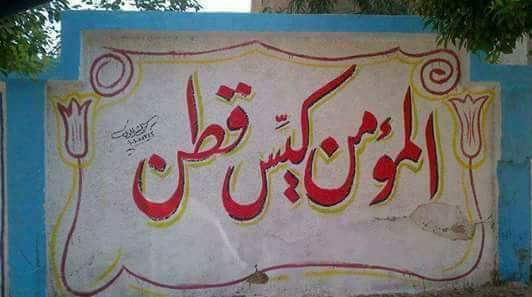 المؤمن كيِّس قطن